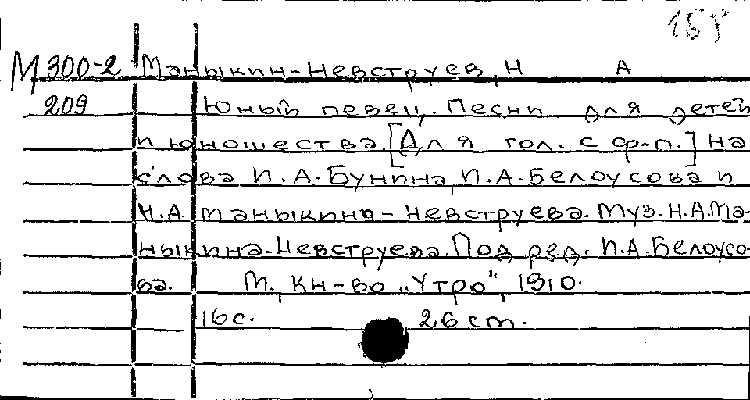 М 300-2 Маныкин-Невструев, Н А
209 Юный певец. Песни для детей
и юношества. [Для гол. с ф-п.] На
слова И. А. Бунина, И. А. Белоусова и
Н. А. Маныкина-Невструева. Муз. Н. А. Ма-
ныкина-Невструева. Под ред. И. А. Белоусо-
ва. М., Кн-во „Утро", 1910.
16 с. 26 cm.